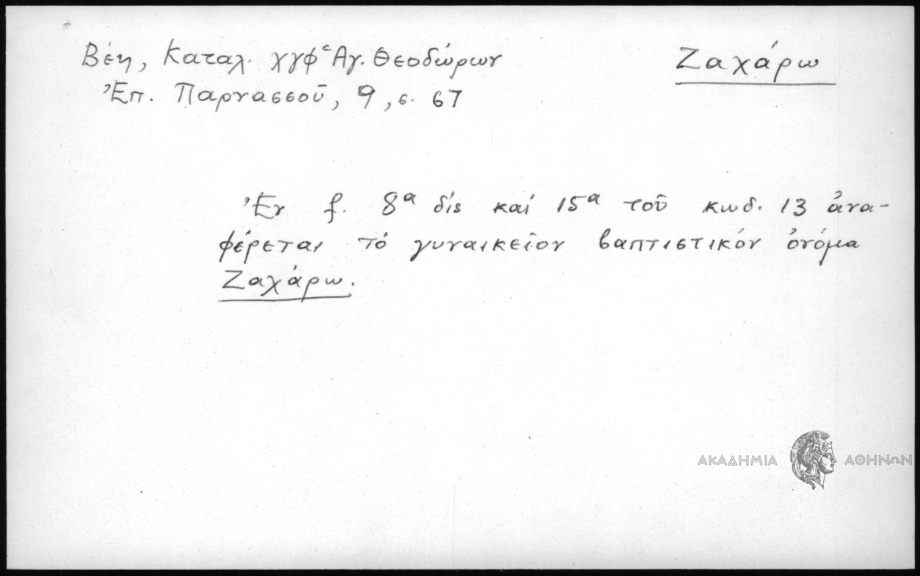 Βέη, Καταλ. χγφ^ε Αγ. Θεοδώρων
Ζαχάρω
Ἐπ. Παρνασσοῦ, 9, σ. 67
Ἐν f. 8^α δὶς καὶ 15^α τοῦ κωδ. 13 ἀνα-
φέρεται τὸ γυναικεῖον βαπτιστικόν ὀνόμα
Ζαχάρω.
ΑΚΑΔΗΜΙΑ ΑΘΗΝΩΝ